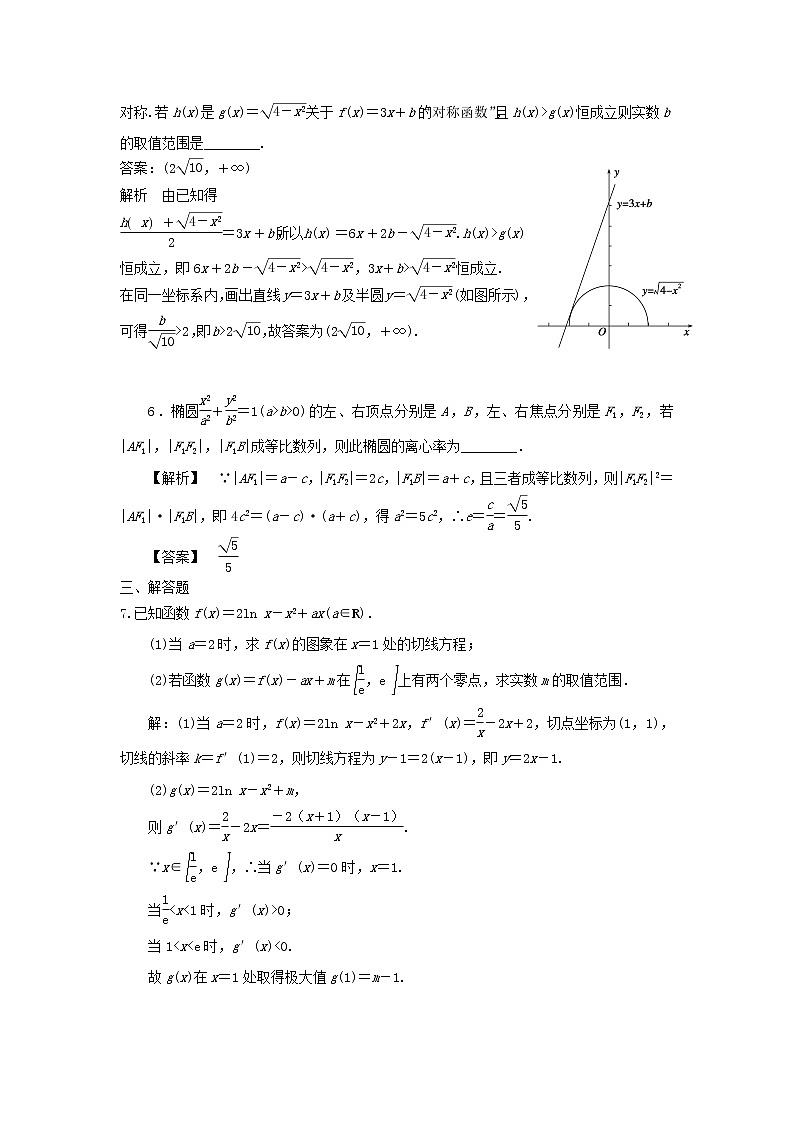 对称.若 h(x)是 g(x)=√(4-x²)关于 f(x)=3x+b的"对称函数"且 h(x)>g(x)恒成立则实数 b
的取值范围是________.
答案:(2√10,+∞)
解析 由已知得
(h(x)+√(4-x²))/2=3x+b所以h(x)=6x+2b-√(4-x²).h(x)>g(x)
恒成立,即 6x+2b-√(4-x²)>√(4-x²),3x+b>√(4-x²)恒成立.
在同一坐标系内,画出直线y=3x+b及半圆y=√(4-x²)(如图所示),
可得b/√10>2,即b>2√10,故答案为(2√10,+∞).
y
y=3x+b
y=√(4-x²)
O
x
6.椭圆x²/a²+y²/b²=1(a>b>0)的左、右顶点分别是 A,B,左、右焦点分别是 F₁,F₂,若
|AF₁|,|F₁F₂|,|F₁B|成等比数列,则此椭圆的离心率为________.
【解析】 ∵|AF₁|=a-c,|F₁F₂|=2c,|F₁B|=a+c,且三者成等比数列,则|F₁F₂|²=
|AF₁|·|F₁B|,即 4c²=(a-c)·(a+c),得 a²=5c²,∴e=c/a=√5/5.
【答案】 √5/5
三、解答题
7.已知函数 f(x)=2ln x-x²+ax(a∈R).
(1)当 a=2时,求 f(x)的图象在 x=1 处的切线方程;
(2)若函数 g(x)=f(x)-ax+m在[1/e,e]上有两个零点,求实数 m 的取值范围.
解:(1)当 a=2 时,f(x)=2ln x-x²+2x,f′(x)=2/x-2x+2,切点坐标为(1,1),
切线的斜率 k=f′(1)=2,则切线方程为 y-1=2(x-1),即 y=2x-1.
(2)g(x)=2ln x-x²+m,
则 g′(x)=2/x-2x=-2(x+1)(x-1)/x.
∵x∈[1/e,e],∴当 g′(x)=0 时,x=1.
当1/e<x<1 时,g′(x)>0;
当 1<x<e时,g′(x)<0.
故 g(x)在 x=1 处取得极大值 g(1)=m-1.